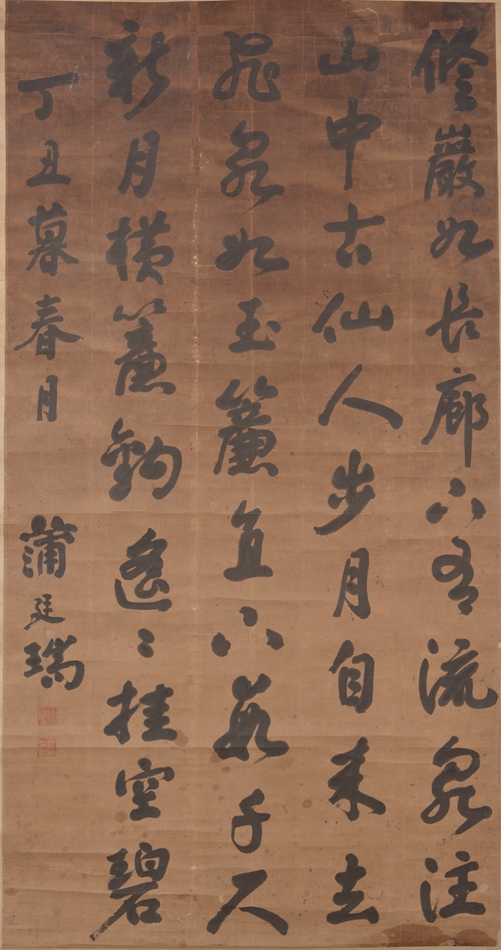 修巖如長廊下有流泉注
山中古仙人步月自来去
飛泉如玉簾直下數千尺
新月横簾鉤遥〻挂空碧
丁丑暮春月
蒲廷瑞